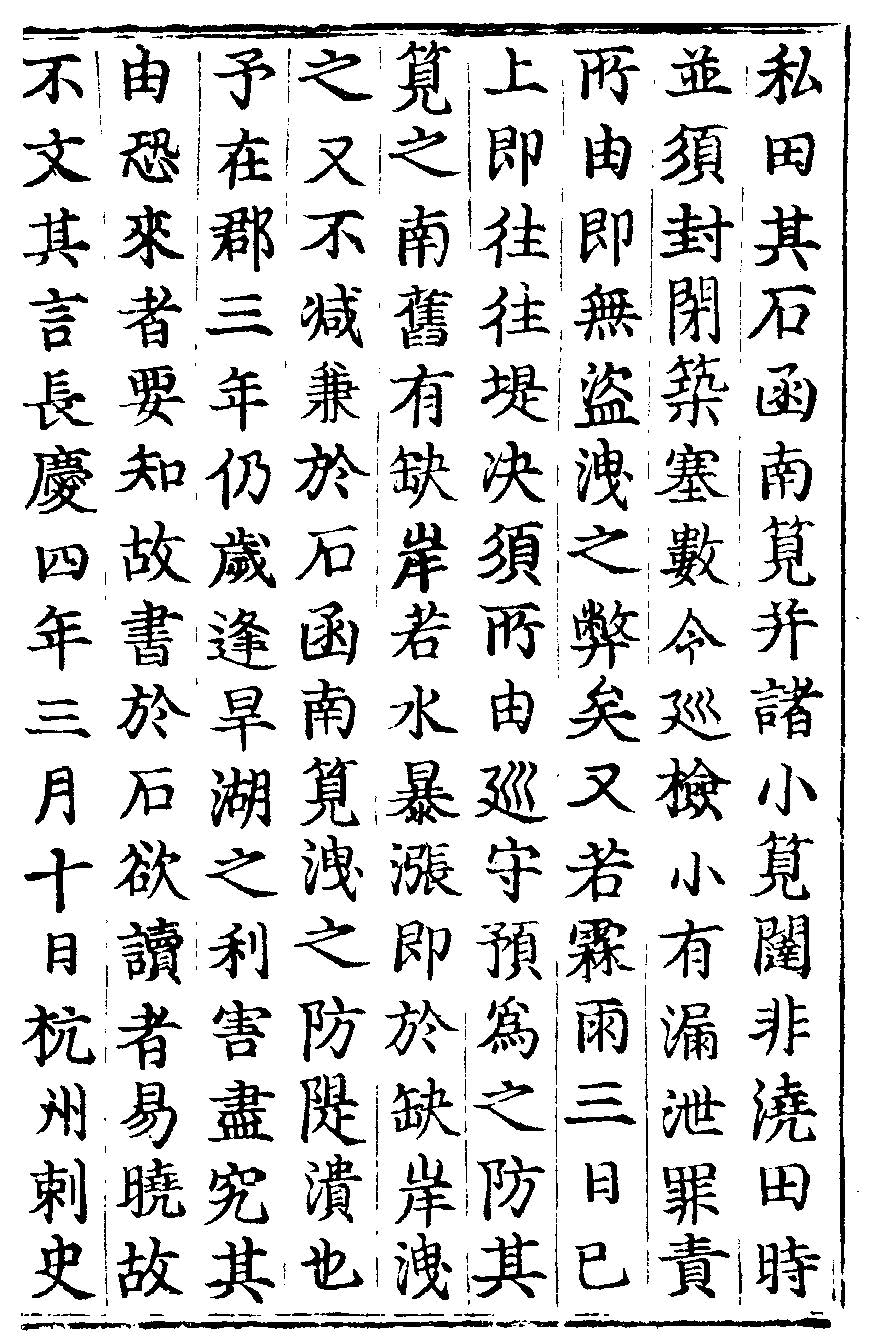 私田其石函南筧并諸小筧闥非澆田時
並須封閉築塞數令巡檢小有漏泄罪責
所由即無盜洩之弊矣又若霖雨三日已
上即往往堤决須所由巡守預爲之防其
筧之南舊有缺岸若水暴漲即於缺岸洩
之又不减兼於石函南筧洩之防隄潰也
予在郡三年仍歲逢旱湖之利害盡究其
由恐來者要知故書於石欲讀者易曉故
不文其言長慶四年三月十日杭州刺史